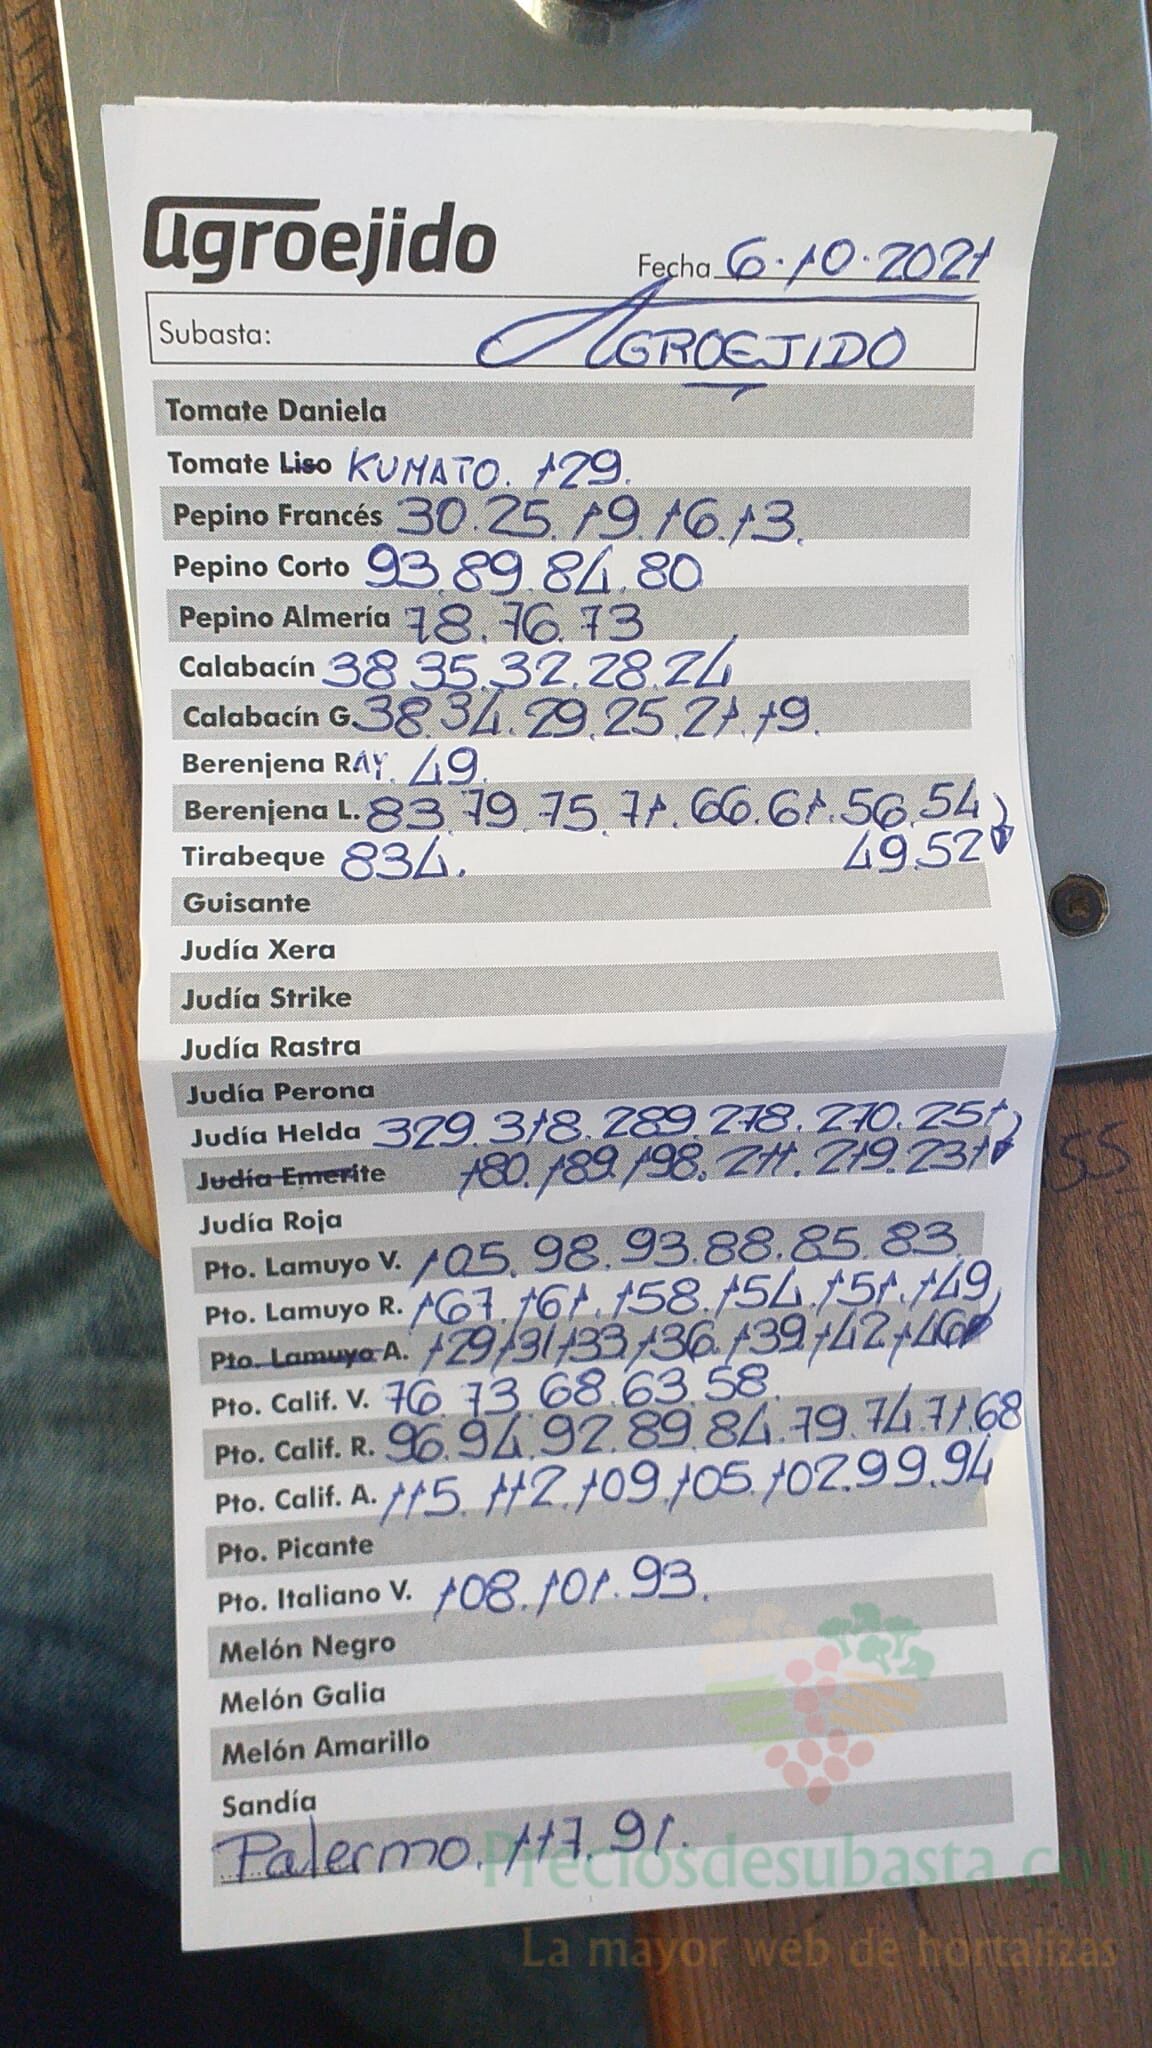 agroejido
Fecha 6.10.2021
Subasta: AGROEJIDO
Tomate Daniela
Tomate Liso KUMATO. 129.
Pepino Francés 30.25.19.16.13.
Pepino Corto 93.89.84.80
Pepino Almería 78.76.73
Calabacín 38.35.32.28.24
Calabacín G. 38.34.29.25.21.19.
Berenjena RAY. 49.
Berenjena L. 83.79.75.71.66.61.56.54
Tirabeque 834. 49.52
Guisante
Judía Xera
Judía Strike
Judía Rastra
Judía Perona
Judía Helda 329.318.289.278.270.251
Judía Emerite 180.189.198.211.219.231
Judía Roja
Pto. Lamuyo V. 105.98.93.88.85.83
Pto. Lamuyo R. 167.161.158.154.151.149
Pto. Lamuyo A. 129.131.133.136.139.142.146
Pto. Calif. V. 76.73.68.63.58.
Pto. Calif. R. 96.94.92.89.84.79.74.71.68
Pto. Calif. A. 115.112.109.105.102.99.94
Pto. Picante
Pto. Italiano V. 108.101.93.
Melón Negro
Melón Galia
Melón Amarillo
Sandía
Palermo. 117.91.
Preciosdesubasta.com
La mayor web de hortalizas